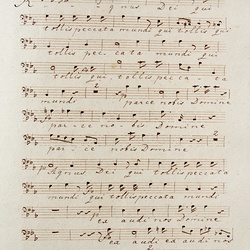 Agnus Dei qui
tollis peccata mundi qui tollis qui
tollis peccata mundi
tollis qui tollis peccata
mundi parce nobis Domine
parce nobis Domine
parce nobis Domine
Agnus Dei qui tollis peccata
mundi qui tollis peccata mundi
ea audi nos Domine
ea audi ea audi no